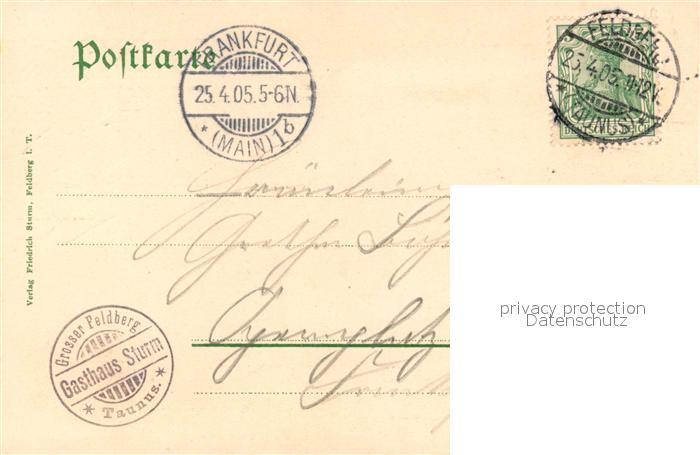 Postkarte
FRANKFURT
25.4.05.5-6N.
* (MAIN) 1b
FELDBERG
25.4.05.11-12V.
* (TAUNUS) *
Verlag Friedrich Sturm, Feldberg i. T.
Fräulein
Opernplatz
privacy protection
Datenschutz
Grosser Feldberg
Gasthaus Sturm
* Taunus. *